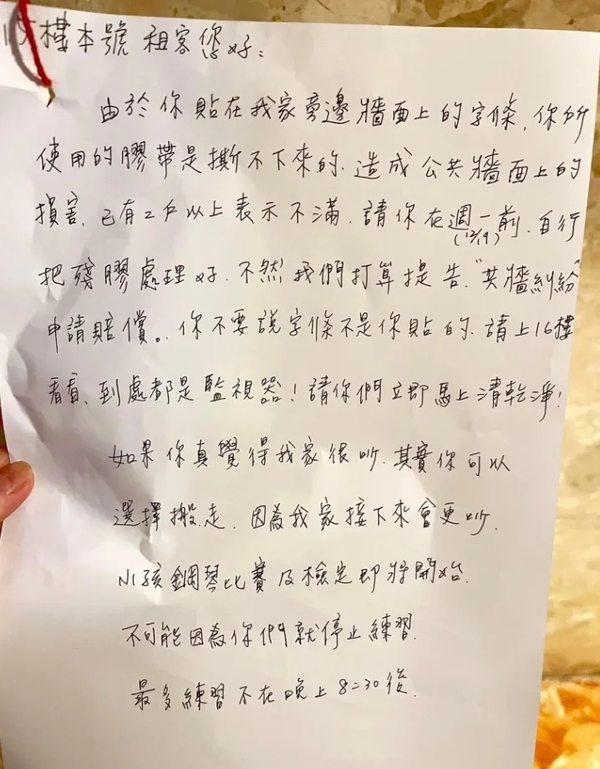 15樓本號 租客您好:
由於你貼在我家旁邊牆面上的字條,你所
使用的膠帶是撕不下來的.造成公共牆面上的
損害.已有2戶以上表示不滿.請你在週一前.自行
(12/9)
把殘膠處理好.不然我們打算提告."共牆糾紛"
申請賠償。你不要說字條不是你貼的.請上16樓
看看、到處都是監視器!請你們立即馬上清乾淨!
如果你真覺得我家很吵.其實你可以
選擇搬走.因為我家接下來會更吵.
小孩鋼琴比賽及檢定即將開始.
不可能因為你們就停止練習.
最多練習不在晚上8:30後.